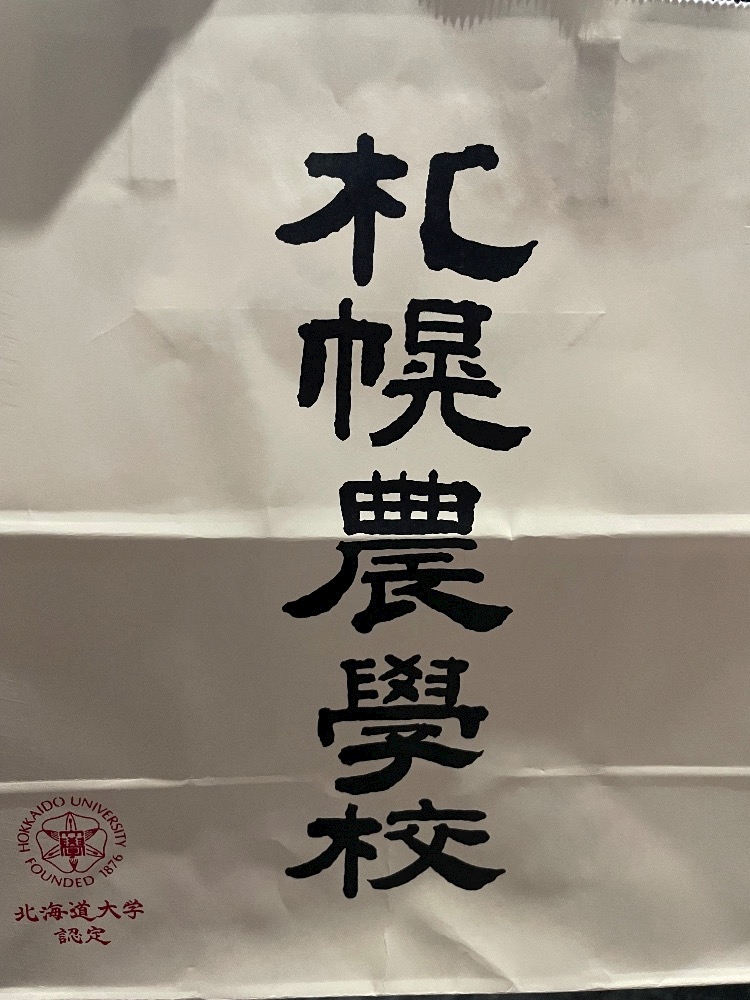 札幌農學校
HOKKAIDO UNIVERSITY
FOUNDED 1876
北海道大学
認定